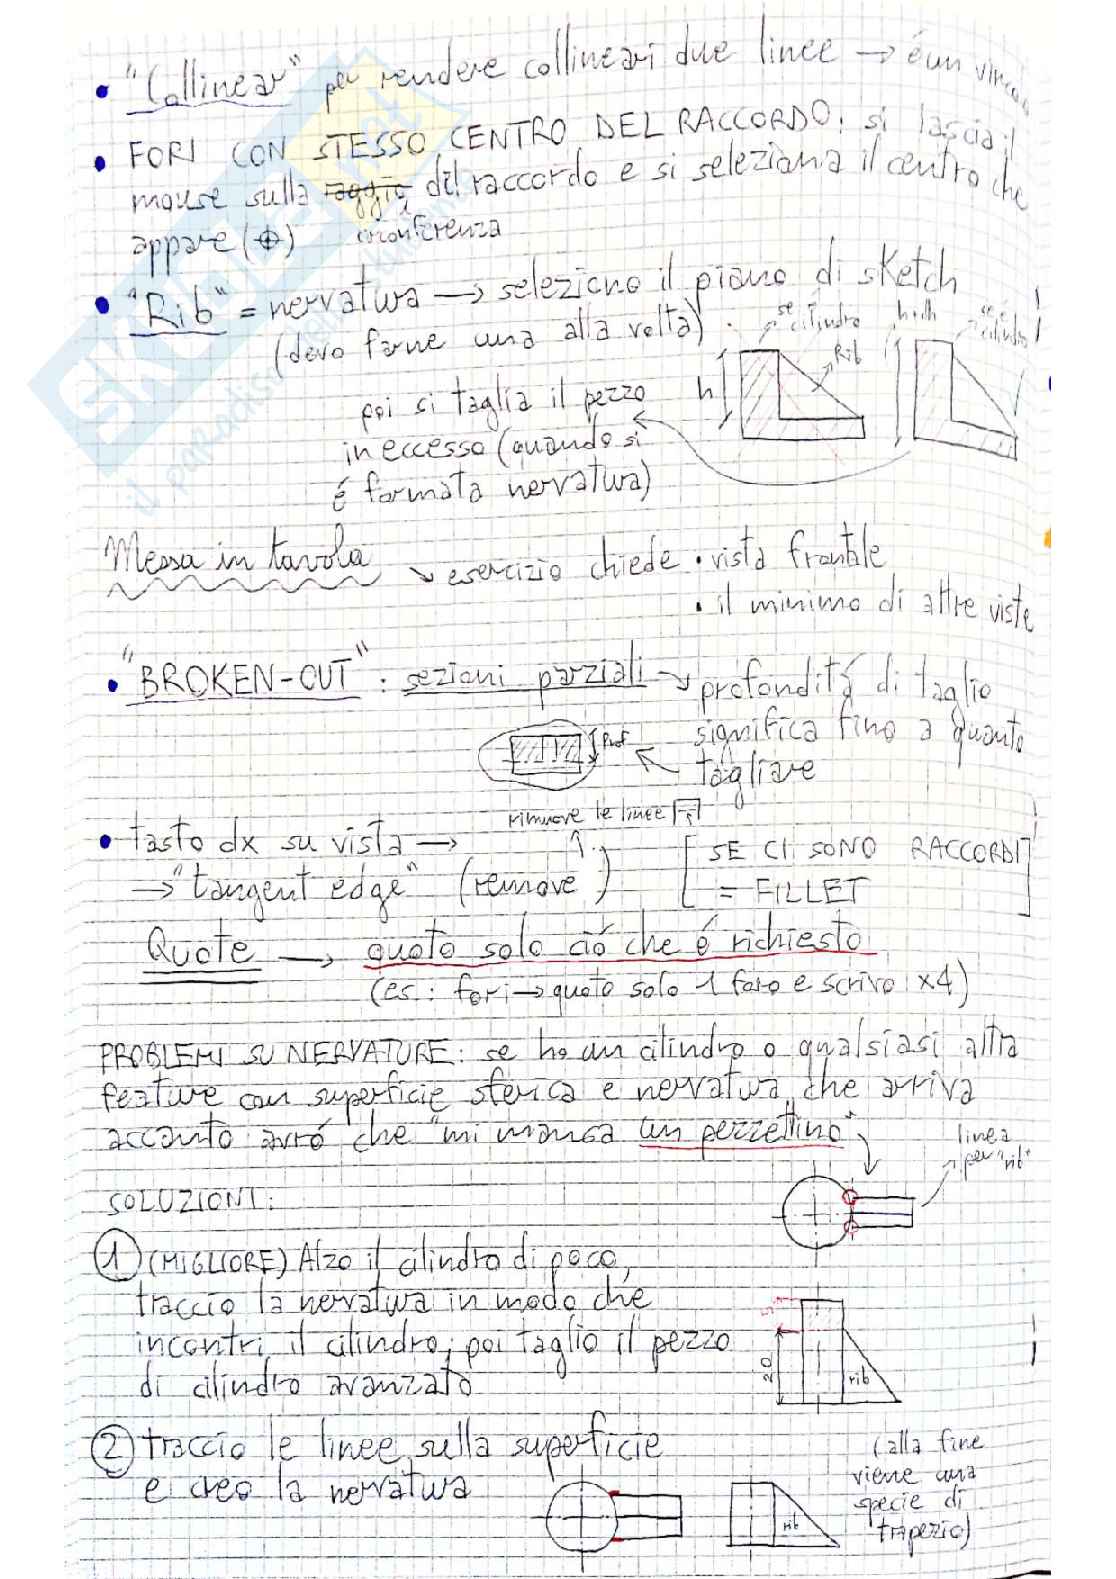 • "Collinear" per rendere collineari due linee → é un vincolo
• FORI CON STESSO CENTRO DEL RACCORDO: si lascia il
mouse sulla raggio del raccordo e si seleziona il centro che
appare (⌖) circonferenza
• "Rib" = nervatura → seleziono il piano di sketch
(devo farne una alla volta)
se cilindro
h
Rib
se é cilindro
poi si taglia il pezzo
in eccesso (quando si
é formata nervatura)
Messa in tavola ↘ esercizio chiede • vista frontale
• il minimo di altre viste
• "BROKEN-OUT": sezioni parziali → profonditá di taglio
significa fino a quanto
tagliare
Prof
rimuove le linee
• tasto dx su vista →
→ "tangent edge" (remove)
[SE CI SONO RACCORDI
= FILLET]
Quote → quoto solo ció che é richiesto
(es.: fori → quoto solo 1 foro e scrivo x4)
PROBLEMI SU NERVATURE: se ho un cilindro o qualsiasi altra
feature con superficie sferica e nervatura che arriva
accanto avró che "mi manca un pezzettino"
linea
per "rib"
SOLUZIONI:
① (MIGLIORE) Alzo il cilindro di poco,
traccio la nervatura in modo che
incontri il cilindro; poi taglio il pezzo
di cilindro avanzato
5
20
rib
② traccio le linee sulla superficie
e creo la nervatura
rib
(alla fine
viene una
specie di
trapezio)